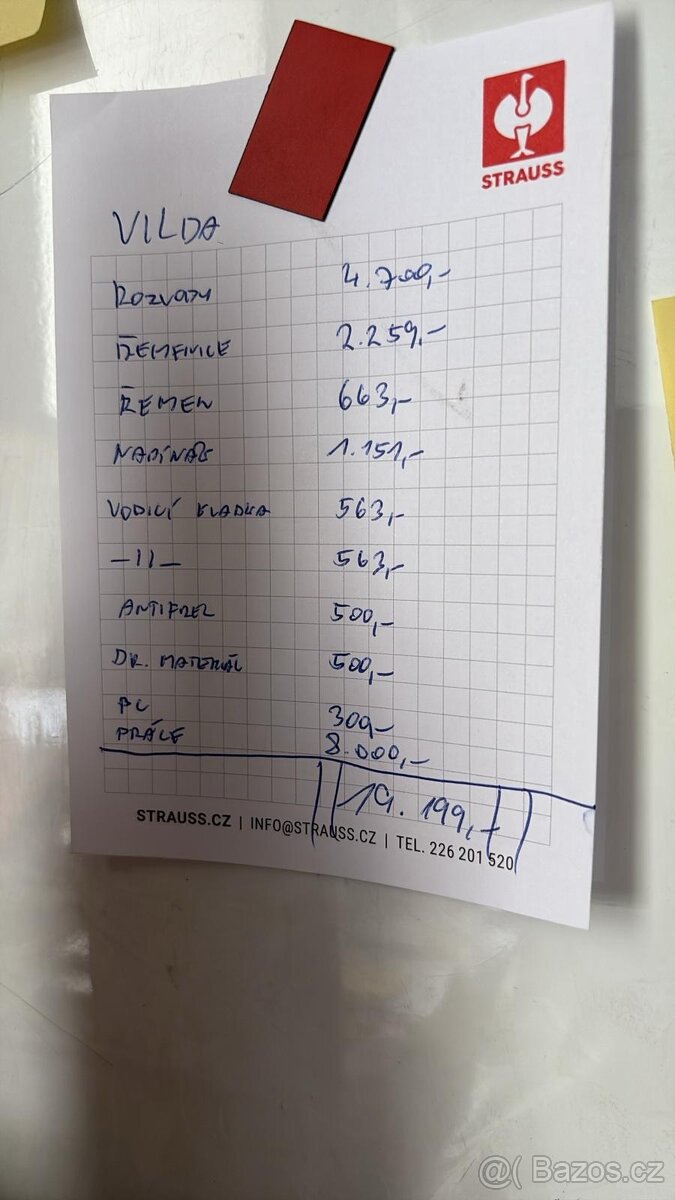 STRAUSS
VILDA
ROZVODY 4.700,-
ŘEMENICE 2.259,-
ŘEMEN 663,-
NAPÍNÁK 1.151,-
VODICÍ KLADKA 563,-
-11- 563,-
ANTIFREZ 500,-
DR. MATERIÁL 500,-
PC 300,-
PRÁCE 8.000,-
19.199,-
STRAUSS.CZ | INFO@STRAUSS.CZ | TEL. 226 201 520
@( Bazos.cz